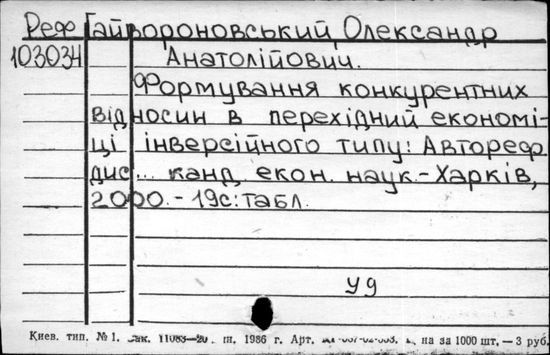 Реф Гайвороновський, Олександр
103034 Анатолійович.
Формування конкурентних
відносин в перехідний економі-
ці інверсійного типу: Автореф.
дис... канд. екон. наук.-Харків,
2000.-19с:табл.
У9
Киев. тип. № 1. Зак. 1986 г. Арт. на за 1000 шт. — 3 руб.